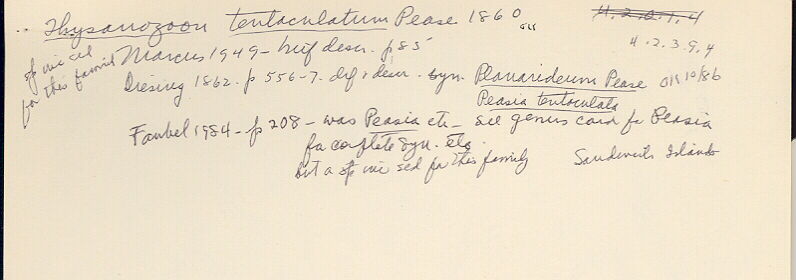 Thysanozoon tentaculatum Pease 1860 ok
4.2.0.1.4
4.2.3.9.4
sp inc sed for this family
Marcus 1949 - brief descr. p85
Diesing 1862. p 556-7. def + descr. syn. Planarideum Pease ok 10/86
Peasia tentaculata
Faubel 1984 - p 208 - was Peasia etc - see genus card for Peasia
for complete syn. etc.
but a sp inc sed for this family
Sandwich Islands